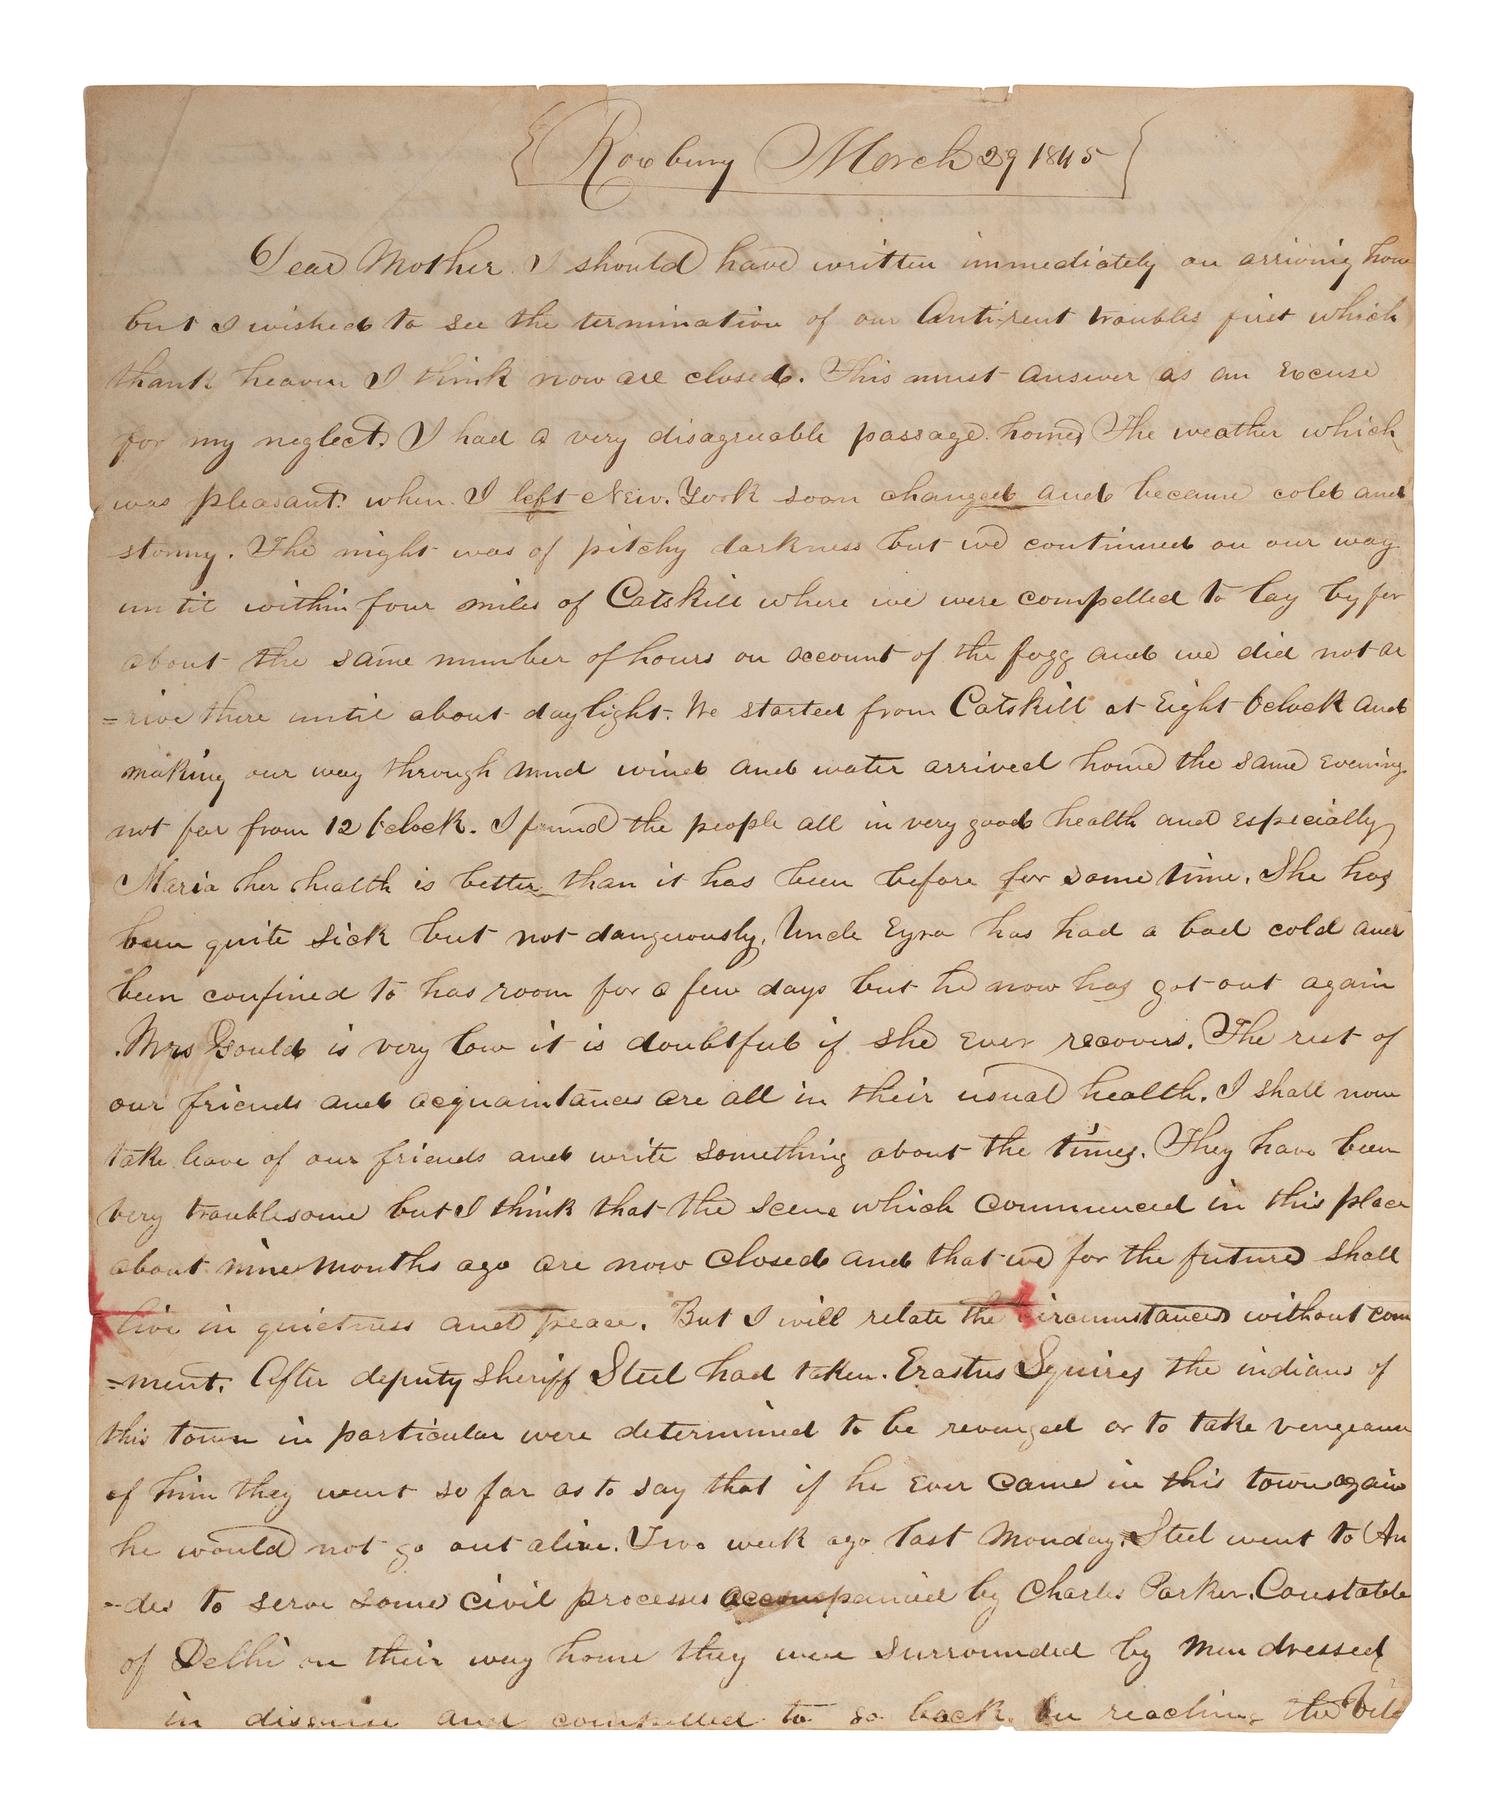 Roxbury March 29 1845
Dear Mother I should have written immediately on arriving home
but I wished to see the termination of our Antirent troubles first which
thank heaven I think now are closed. This must answer as an excuse
for my neglect. I had a very disagreeable passage home, The weather which
was pleasant when I left New. York soon changed and became cold and
stormy. The night was of pitchy darkness but we continued on our way
until within four miles of Catskill where we were compelled to lay by for
about the same number of hours on account of the fogg and we did not ar
=rive there until about daylight. We started from Catskill at Eight Oclock and
making our way through mud wind and water arrived home the same evening
not far from 12 Oclock. I found the people all in very good health and especially
Maria her health is better than it has been before for some time. She has
been quite sick but not dangerously. Uncle Ezra has had a bad cold and
been confined to has room for a few days but he now has got out again
. Mrs Gould is very low it is doubtful if she ever recovers. The rest of
our friends and acquaintances are all in their usual health. I shall now
take leave of our friends and write something about the times. They have been
very troublesome but I think that the scene which commenced in this place
about nine months ago are now closed and that we for the future shall
live in quietness and peace. But I will relate the circumstances without com
=ment. After deputy sheriff Steel had taken. Erastus Squires the indians of
this town in particular were determined to be revenged or to take vengeance
of him they went so far as to say that if he ever came in this town again
he would not go out alive. Two week ago last Monday. Steel went to An
-des to serve some civil processes accompanied by Charles Parker. Constable
of Delhi on their way home they were surrounded by men dressed
in disguise and compelled to go back. On reaching the vil